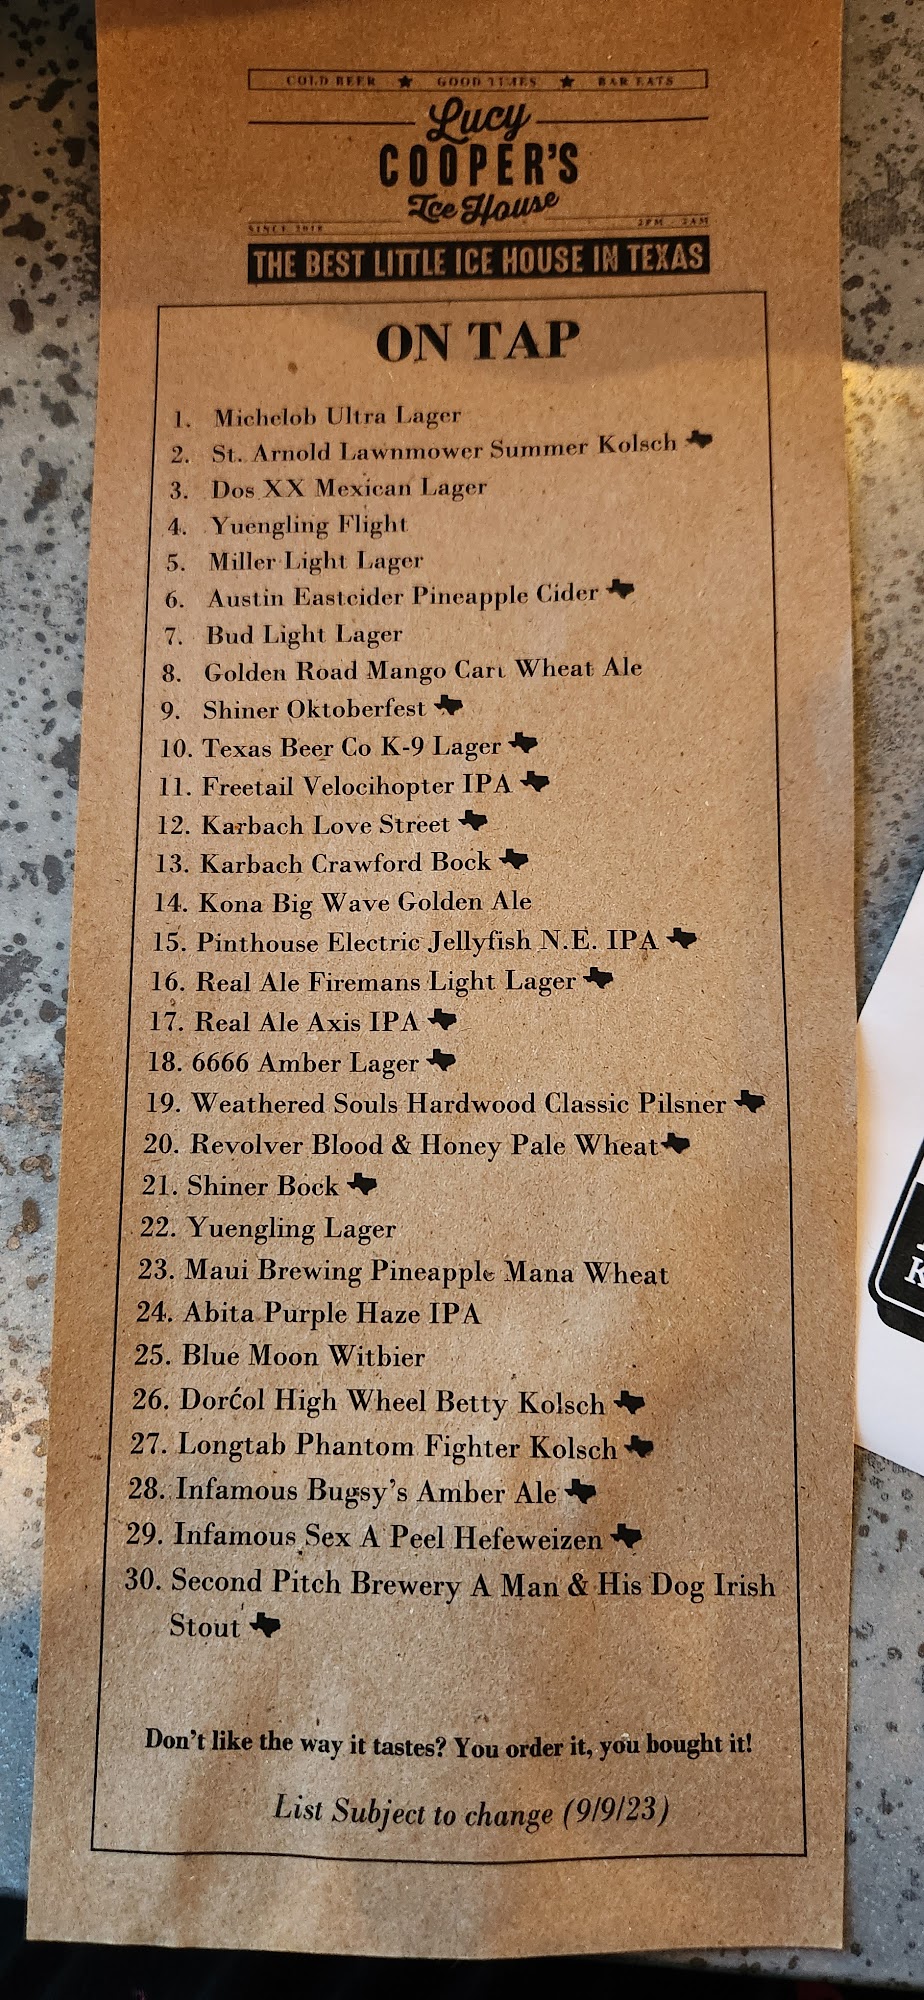 COLD BEER ★ GOOD TIMES ★ BAR EATS
Lucy
COOPER'S
Ice House
SINCE 2018 2PM - 2AM
THE BEST LITTLE ICE HOUSE IN TEXAS
ON TAP
1. Michelob Ultra Lager
2. St. Arnold Lawnmower Summer Kolsch
3. Dos XX Mexican Lager
4. Yuengling Flight
5. Miller Light Lager
6. Austin Eastcider Pineapple Cider
7. Bud Light Lager
8. Golden Road Mango Cart Wheat Ale
9. Shiner Oktoberfest
10. Texas Beer Co K-9 Lager
11. Freetail Velocihopter IPA
12. Karbach Love Street
13. Karbach Crawford Bock
14. Kona Big Wave Golden Ale
15. Pinthouse Electric Jellyfish N.E. IPA
16. Real Ale Firemans Light Lager
17. Real Ale Axis IPA
18. 6666 Amber Lager
19. Weathered Souls Hardwood Classic Pilsner
20. Revolver Blood & Honey Pale Wheat
21. Shiner Bock
22. Yuengling Lager
23. Maui Brewing Pineapple Mana Wheat
24. Abita Purple Haze IPA
25. Blue Moon Witbier
26. Dorćol High Wheel Betty Kolsch
27. Longtab Phantom Fighter Kolsch
28. Infamous Bugsy's Amber Ale
29. Infamous Sex A Peel Hefeweizen
30. Second Pitch Brewery A Man & His Dog Irish
Stout
Don't like the way it tastes? You order it, you bought it!
List Subject to change (9/9/23)